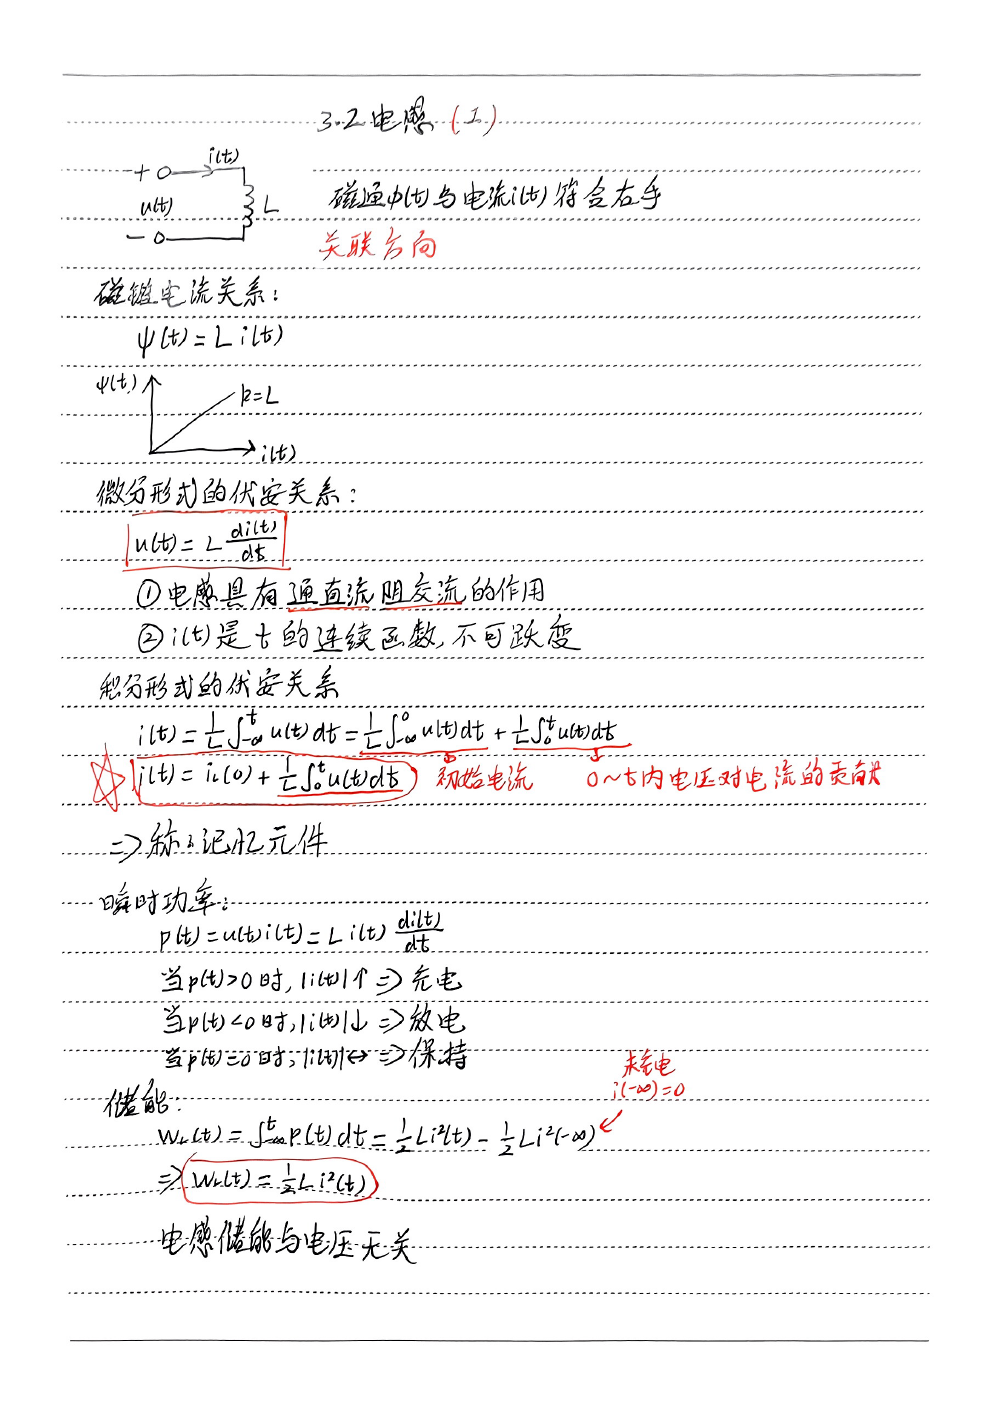 3.2 电感 (1)
i(t)
+
u(t)
L
-
磁通φ(t)与电流i(t)符合右手
关联方向
磁链电流关系:
ψ(t) = L i(t)
ψ(t)
k=L
i(t)
微分形式的伏安关系:
u(t) = L di(t)/dt
①电感具有通直流阻交流的作用
②i(t)是t的连续函数,不可跃变
积分形式的伏安关系
i(t) = 1/L ∫_{-∞}^{t} u(t)dt = 1/L ∫_{-∞}^{0} u(t)dt + 1/L ∫_{0}^{t} u(t)dt
i(t) = i_L(0) + 1/L ∫_{0}^{t} u(t)dt 初始电流 0~t内电压对电流的贡献
=> 称之记忆元件
瞬时功率:
p(t) = u(t)i(t) = L i(t) di(t)/dt
当p(t)>0时, |i(t)|↑ => 充电
当p(t)<0时, |i(t)|↓ => 放电
当p(t)=0时, |i(t)|↔ => 保持
未充电
i(-∞)=0
储能:
W_L(t) = ∫_{-∞}^{t} p(t)dt = 1/2 Li²(t) - 1/2 Li²(-∞)
=> W_L(t) = 1/2 L i²(t)
电感储能与电压无关